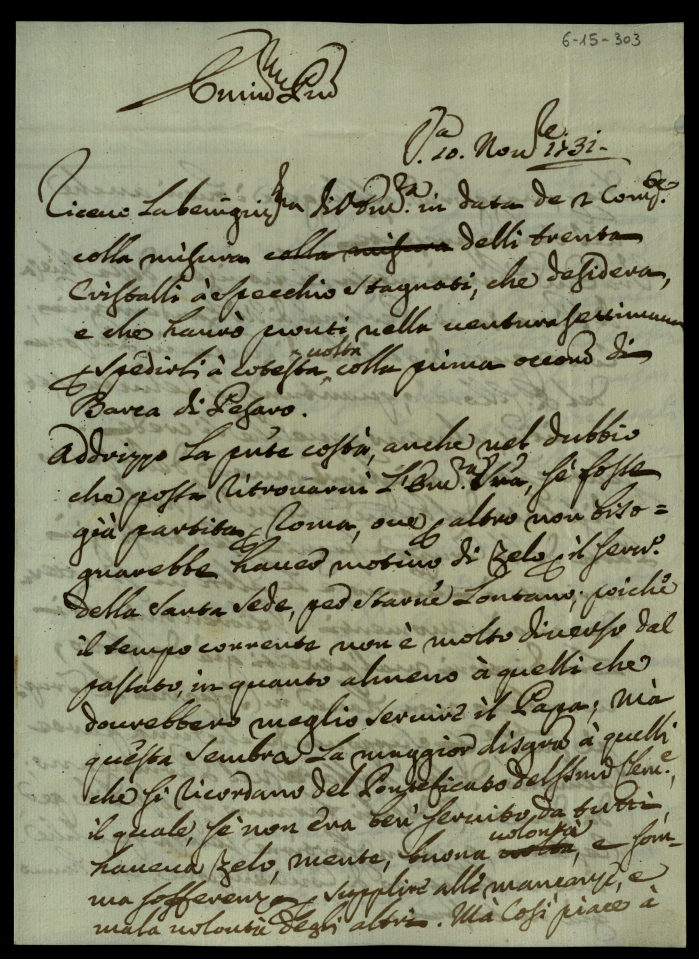 6-15-303
Emin.mo Prñ
V.a 10. Nov.re 1731.
Ricevo La benig.ma di V. Em.za in data de 2 Corr.e
colla misura colla misura delli trenta
Cristalli à specchio stagnati, che desidera,
e che haurò pronti nella ventura settimana
spedirli à cotesta volta colla prima occorñ di
Barca di Pesaro.
Addrizzo La pñte costà, anche nel dubbio
che possa ritrovarvi L'Em.za Vrã, se fosse
già partita Roma, ove altro non biso=
gnarebbe haver motivo di Zelo il serv.o
della Santa Sede, per starne Lontano; poiche
il tempo corrente non è molto diverso dal
passato, in quanto almeno à quelli che
dovrebbero meglio servire il Papa; Mà
questa sembra La maggior disgra à quelli
che si ricordano del Pontificato del Ssmo Clem.e,
il quale, se non era ben servito da tutti,
haveva Zelo, mente, buona volontà, e som=
ma sofferenza supplire alle mancanze, e
mala volontà degli altri. Mà Così piace à